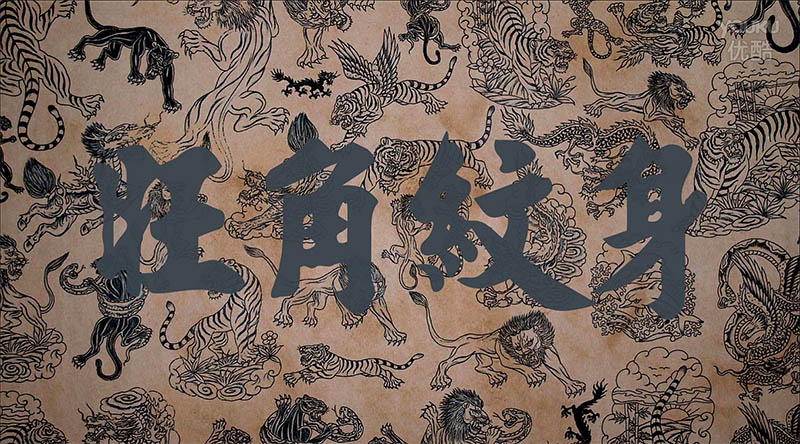 YOUKU
优酷
旺角紋身